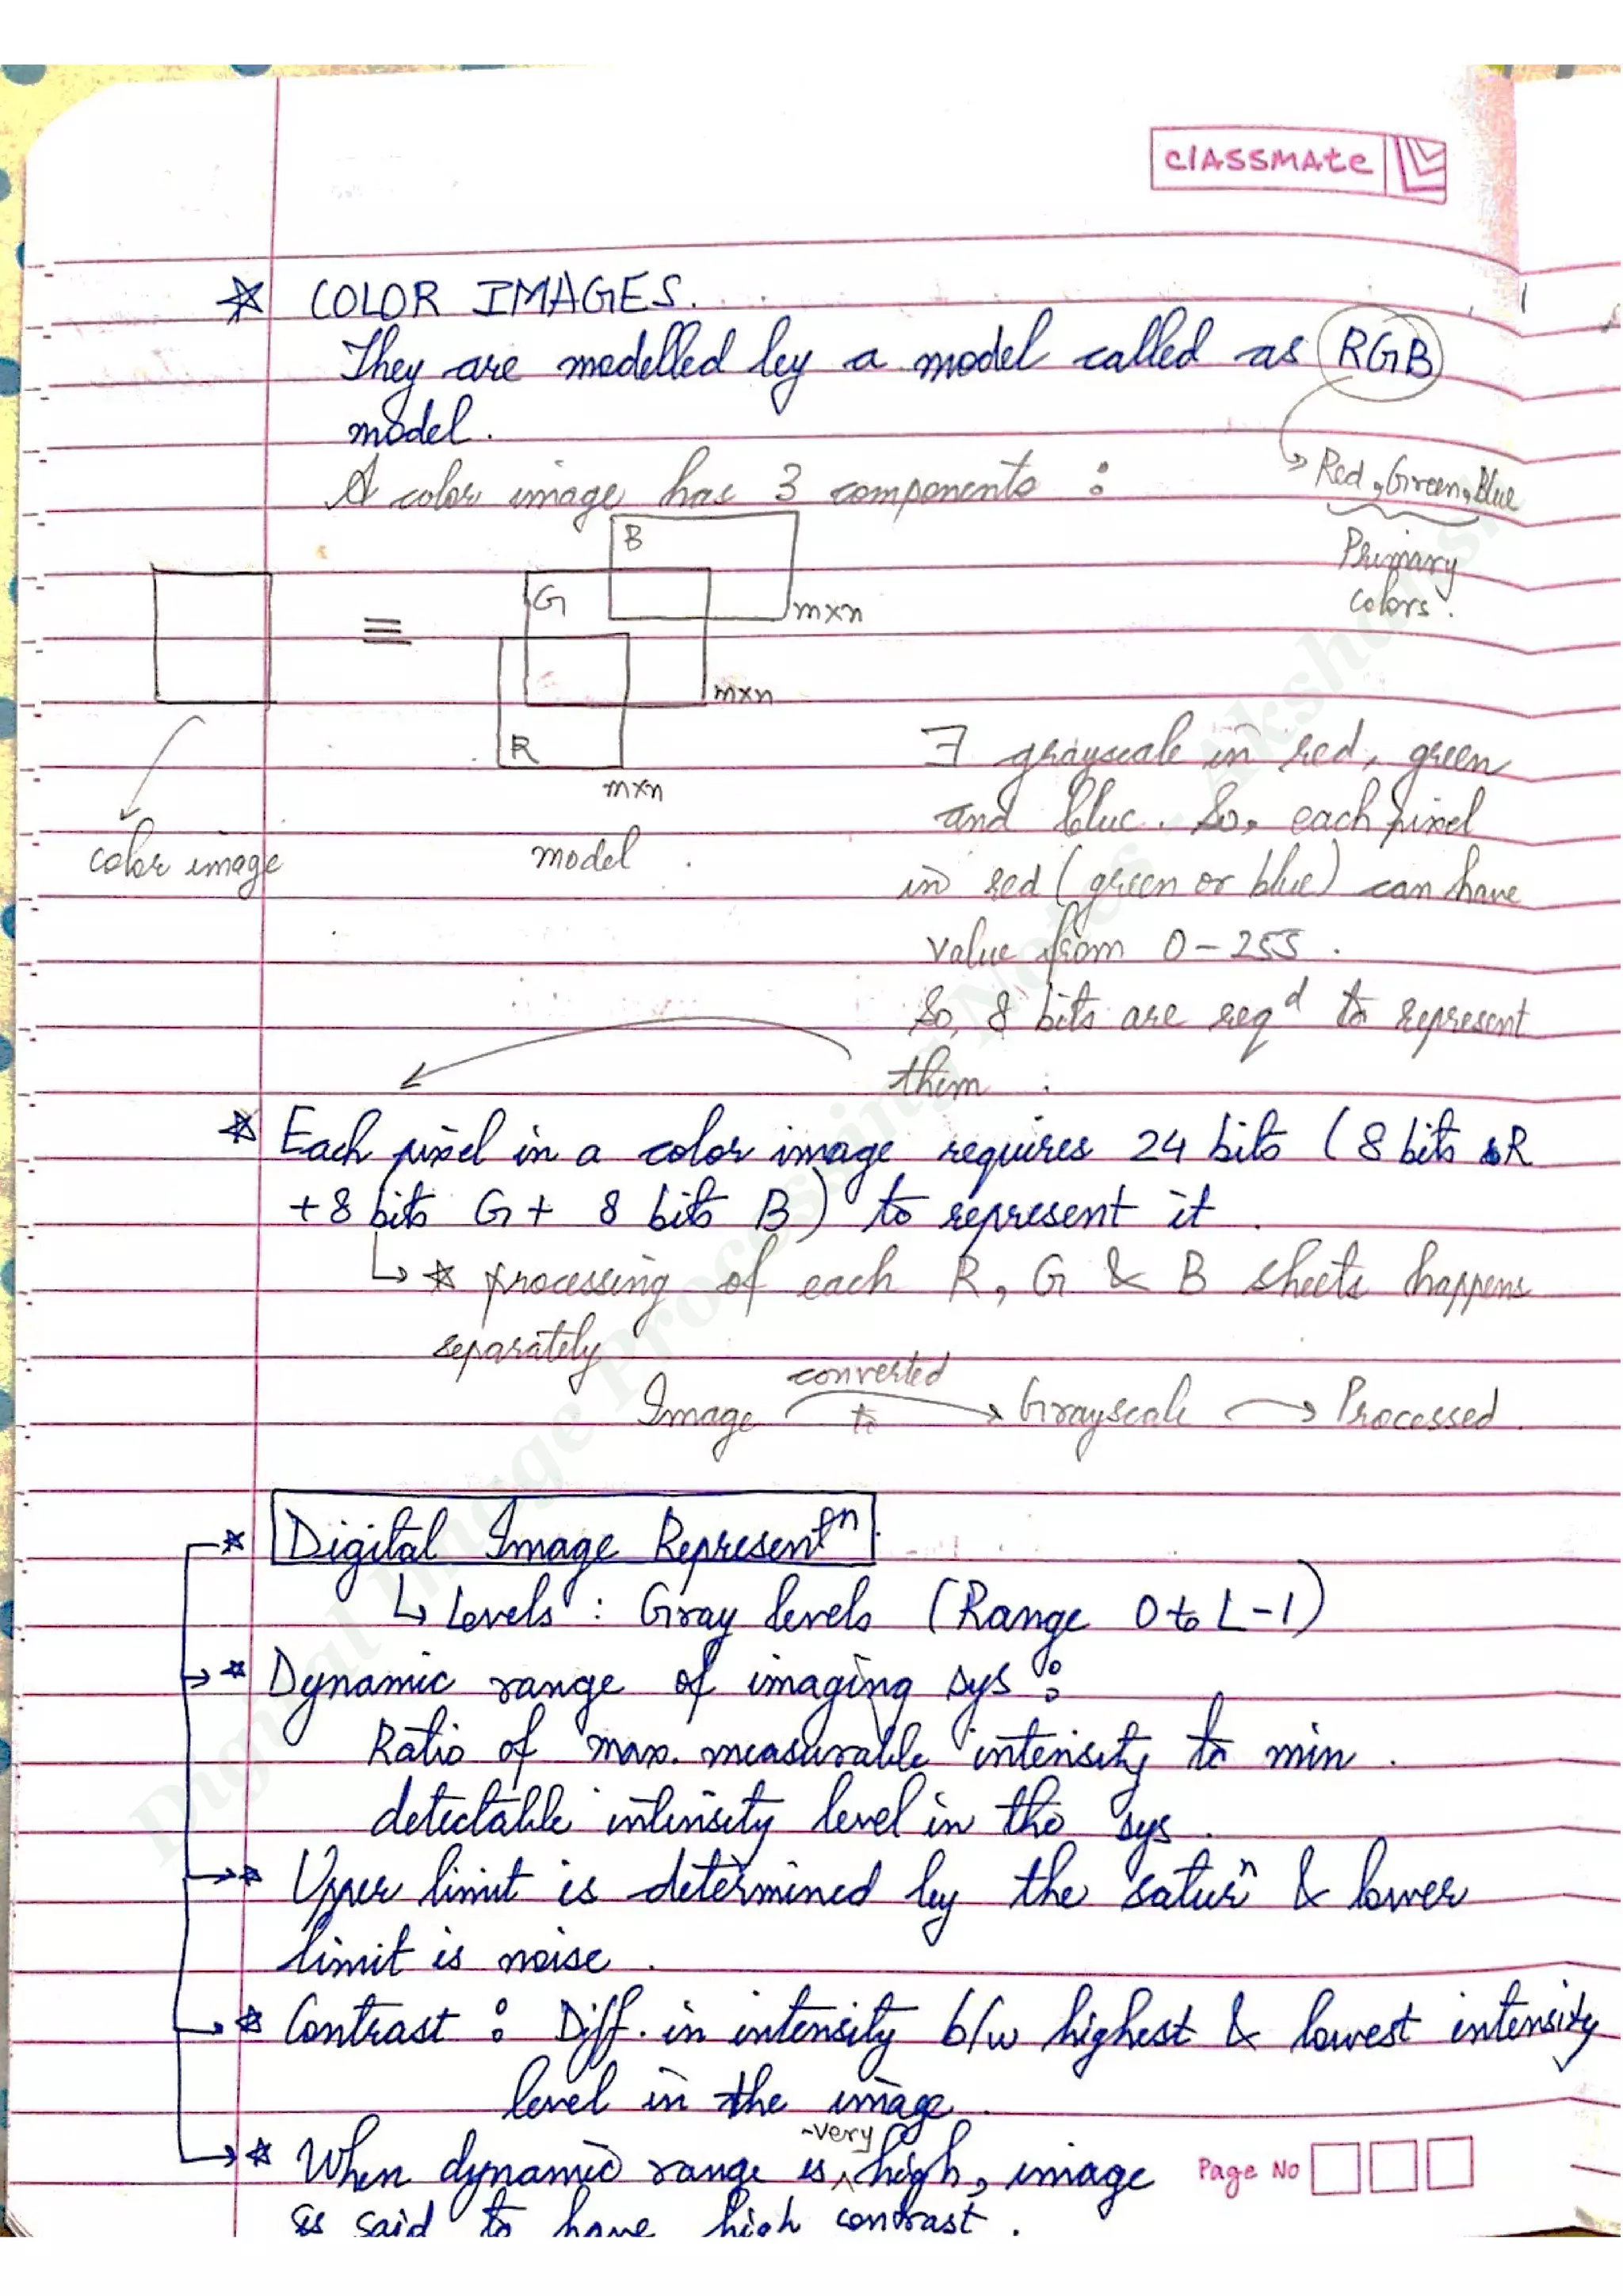 classmate
☆ COLOR IMAGES.
They are modelled by a model called as RGB
model.
→ Red, Green, Blue
Primary
colors.
A color image has 3 components :
B
m×n
G
≡
m×n
R
m×n
color image
model
∃ grayscale in red, green
and blue. So, each pixel
in red (green or blue) can have
value from 0-255.
So, 8 bits are reqd to represent
them.
☆ Each pixel in a color image requires 24 bits (8 bits R
+8 bits G+ 8 bits B) to represent it.
↳ ☆ processing of each R, G & B sheets happens
separately
Image converted to → Grayscale → Processed.
☆ Digital Image Representn.
↳ Levels : Gray levels (Range 0 to L-1)
→☆ Dynamic range of imaging sys :
Ratio of max. measurable intensity to min.
detectable intensity level in the sys.
→☆ Upper limit is determined by the saturn & lower
limit is noise.
→☆ Contrast : Diff. in intensity b/w highest & lowest intensity
level in the image.
→☆ When dynamic range is very high, image
is said to have high contrast.
Page No
Digital Image Processing Notes - Akshansh